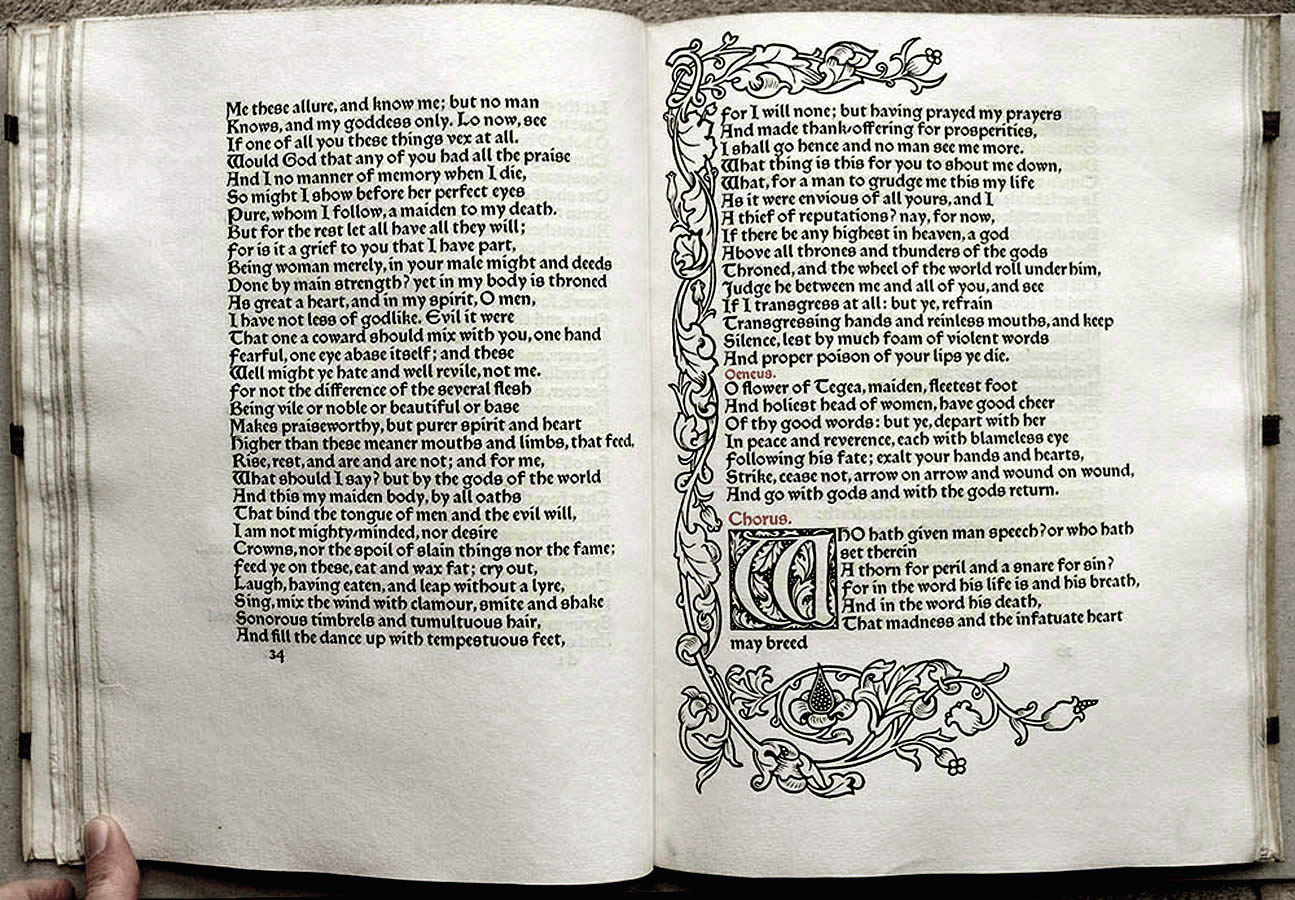 Me these allure, and know me; but no man
Knows, and my goddess only. Lo now, see
If one of all you these things vex at all.
Would God that any of you had all the praise
And I no manner of memory when I die,
So might I show before her perfect eyes
Pure, whom I follow, a maiden to my death.
But for the rest let all have all they will;
For is it a grief to you that I have part,
Being woman merely, in your male might and deeds
Done by main strength? yet in my body is throned
As great a heart, and in my spirit, O men,
I have not less of godlike. Evil it were
That one a coward should mix with you, one hand
Fearful, one eye abase itself; and these
Well might ye hate and well revile, not me.
For not the difference of the several flesh
Being vile or noble or beautiful or base
Makes praiseworthy, but purer spirit and heart
Higher than these meaner mouths and limbs, that feed,
Rise, rest, and are and are not; and for me,
What should I say? but by the gods of the world
And this my maiden body, by all oaths
That bind the tongue of men and the evil will,
I am not mighty-minded, nor desire
Crowns, nor the spoil of slain things nor the fame;
Feed ye on these, eat and wax fat; cry out,
Laugh, having eaten, and leap without a lyre,
Sing, mix the wind with clamour, smite and shake
Sonorous timbrels and tumultuous hair,
And fill the dance up with tempestuous feet,
34
For I will none; but having prayed my prayers
And made thank-offering for prosperities,
I shall go hence and no man see me more.
What thing is this for you to shout me down,
What, for a man to grudge me this my life
As it were envious of all yours, and I
A thief of reputations? nay, for now,
If there be any highest in heaven, a god
Above all thrones and thunders of the gods
Throned, and the wheel of the world roll under him,
Judge he between me and all of you, and see
If I transgress at all: but ye, refrain
Transgressing hands and reinless mouths, and keep
Silence, lest by much foam of violent words
And proper poison of your lips ye die.
Oeneus.
O flower of Tegea, maiden, fleetest foot
And holiest head of women, have good cheer
Of thy good words: but ye, depart with her
In peace and reverence, each with blameless eye
Following his fate; exalt your hands and hearts,
Strike, cease not, arrow on arrow and wound on wound,
And go with gods and with the gods return.
Chorus.
WHO hath given man speech? or who hath
set therein
A thorn for peril and a snare for sin?
For in the word his life is and his breath,
And in the word his death,
That madness and the infatuate heart
may breed